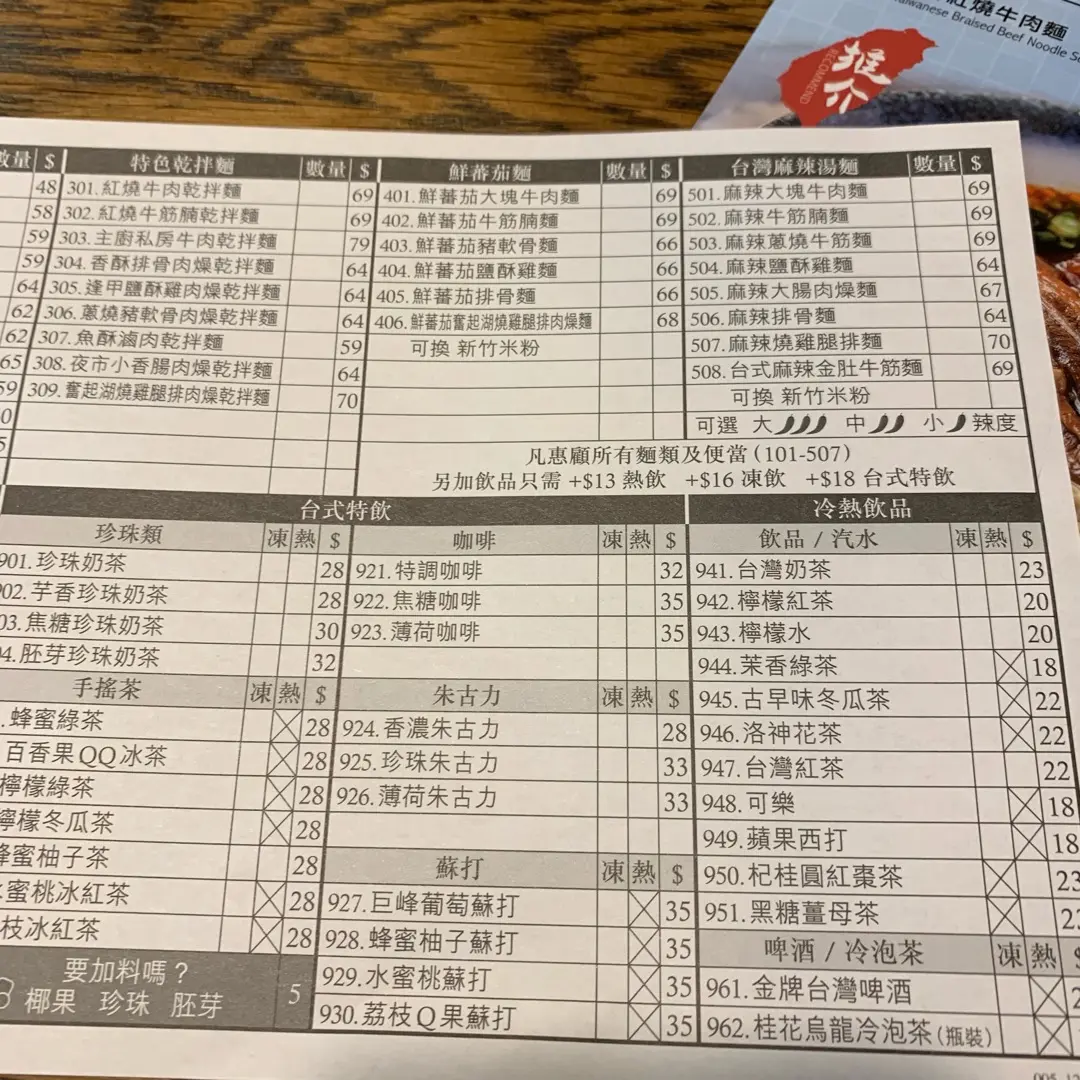 紅燒牛肉麵
Taiwanese Braised Beef Noodle
推介
RECOMMEND
數量 $ 特色乾拌麵 數量 $ 鮮蕃茄麵 數量 $ 台灣麻辣湯麵 數量 $
48 301.紅燒牛肉乾拌麵 69 401.鮮蕃茄大塊牛肉麵 69 501.麻辣大塊牛肉麵 69
58 302.紅燒牛筋腩乾拌麵 69 402.鮮蕃茄牛筋腩麵 69 502.麻辣牛筋腩麵 69
59 303.主廚私房牛肉乾拌麵 79 403.鮮蕃茄豬軟骨麵 66 503.麻辣蔥燒牛筋麵 69
59 304.香酥排骨肉燥乾拌麵 64 404.鮮蕃茄鹽酥雞麵 66 504.麻辣鹽酥雞麵 64
64 305.逢甲鹽酥雞肉燥乾拌麵 64 405.鮮蕃茄排骨麵 66 505.麻辣大腸肉燥麵 67
62 306.蔥燒豬軟骨肉燥乾拌麵 64 406.鮮蕃茄奮起湖燒雞腿排肉燥麵 68 506.麻辣排骨麵 64
62 307.魚酥滷肉乾拌麵 59 可換 新竹米粉 507.麻辣燒雞腿排麵 70
65 308.夜市小香腸肉燥乾拌麵 64 508.台式麻辣金肚牛筋麵 69
59 309.奮起湖燒雞腿排肉燥乾拌麵 70 可換 新竹米粉
可選 大 中 小 辣度
凡惠顧所有麵類及便當(101-507)
另加飲品只需 +$13 熱飲 +$16 凍飲 +$18 台式特飲
台式特飲 冷熱飲品
珍珠類 凍 熱 $ 咖啡 凍 熱 $ 飲品 / 汽水 凍 熱 $
901.珍珠奶茶 28 921.特調咖啡 32 941.台灣奶茶 23
902.芋香珍珠奶茶 28 922.焦糖咖啡 35 942.檸檬紅茶 20
03.焦糖珍珠奶茶 30 923.薄荷咖啡 35 943.檸檬水 20
04.胚芽珍珠奶茶 32 944.茉香綠茶 18
手搖茶 凍 熱 $ 朱古力 凍 熱 $ 945.古早味冬瓜茶 22
.蜂蜜綠茶 28 924.香濃朱古力 28 946.洛神花茶 22
百香果QQ冰茶 28 925.珍珠朱古力 33 947.台灣紅茶 22
檸檬綠茶 28 926.薄荷朱古力 33 948.可樂 18
檸檬冬瓜茶 28 949.蘋果西打 18
蜂蜜柚子茶 28 蘇打 凍 熱 $ 950.杞桂圓紅棗茶 23
水蜜桃冰紅茶 28 927.巨峰葡萄蘇打 35 951.黑糖薑母茶
枝冰紅茶 28 928.蜂蜜柚子蘇打 35 啤酒 / 冷泡茶 凍 熱
要加料嗎？ 5 929.水蜜桃蘇打 35 961.金牌台灣啤酒
椰果 珍珠 胚芽 930.荔枝Q果蘇打 35 962.桂花烏龍冷泡茶(瓶裝)